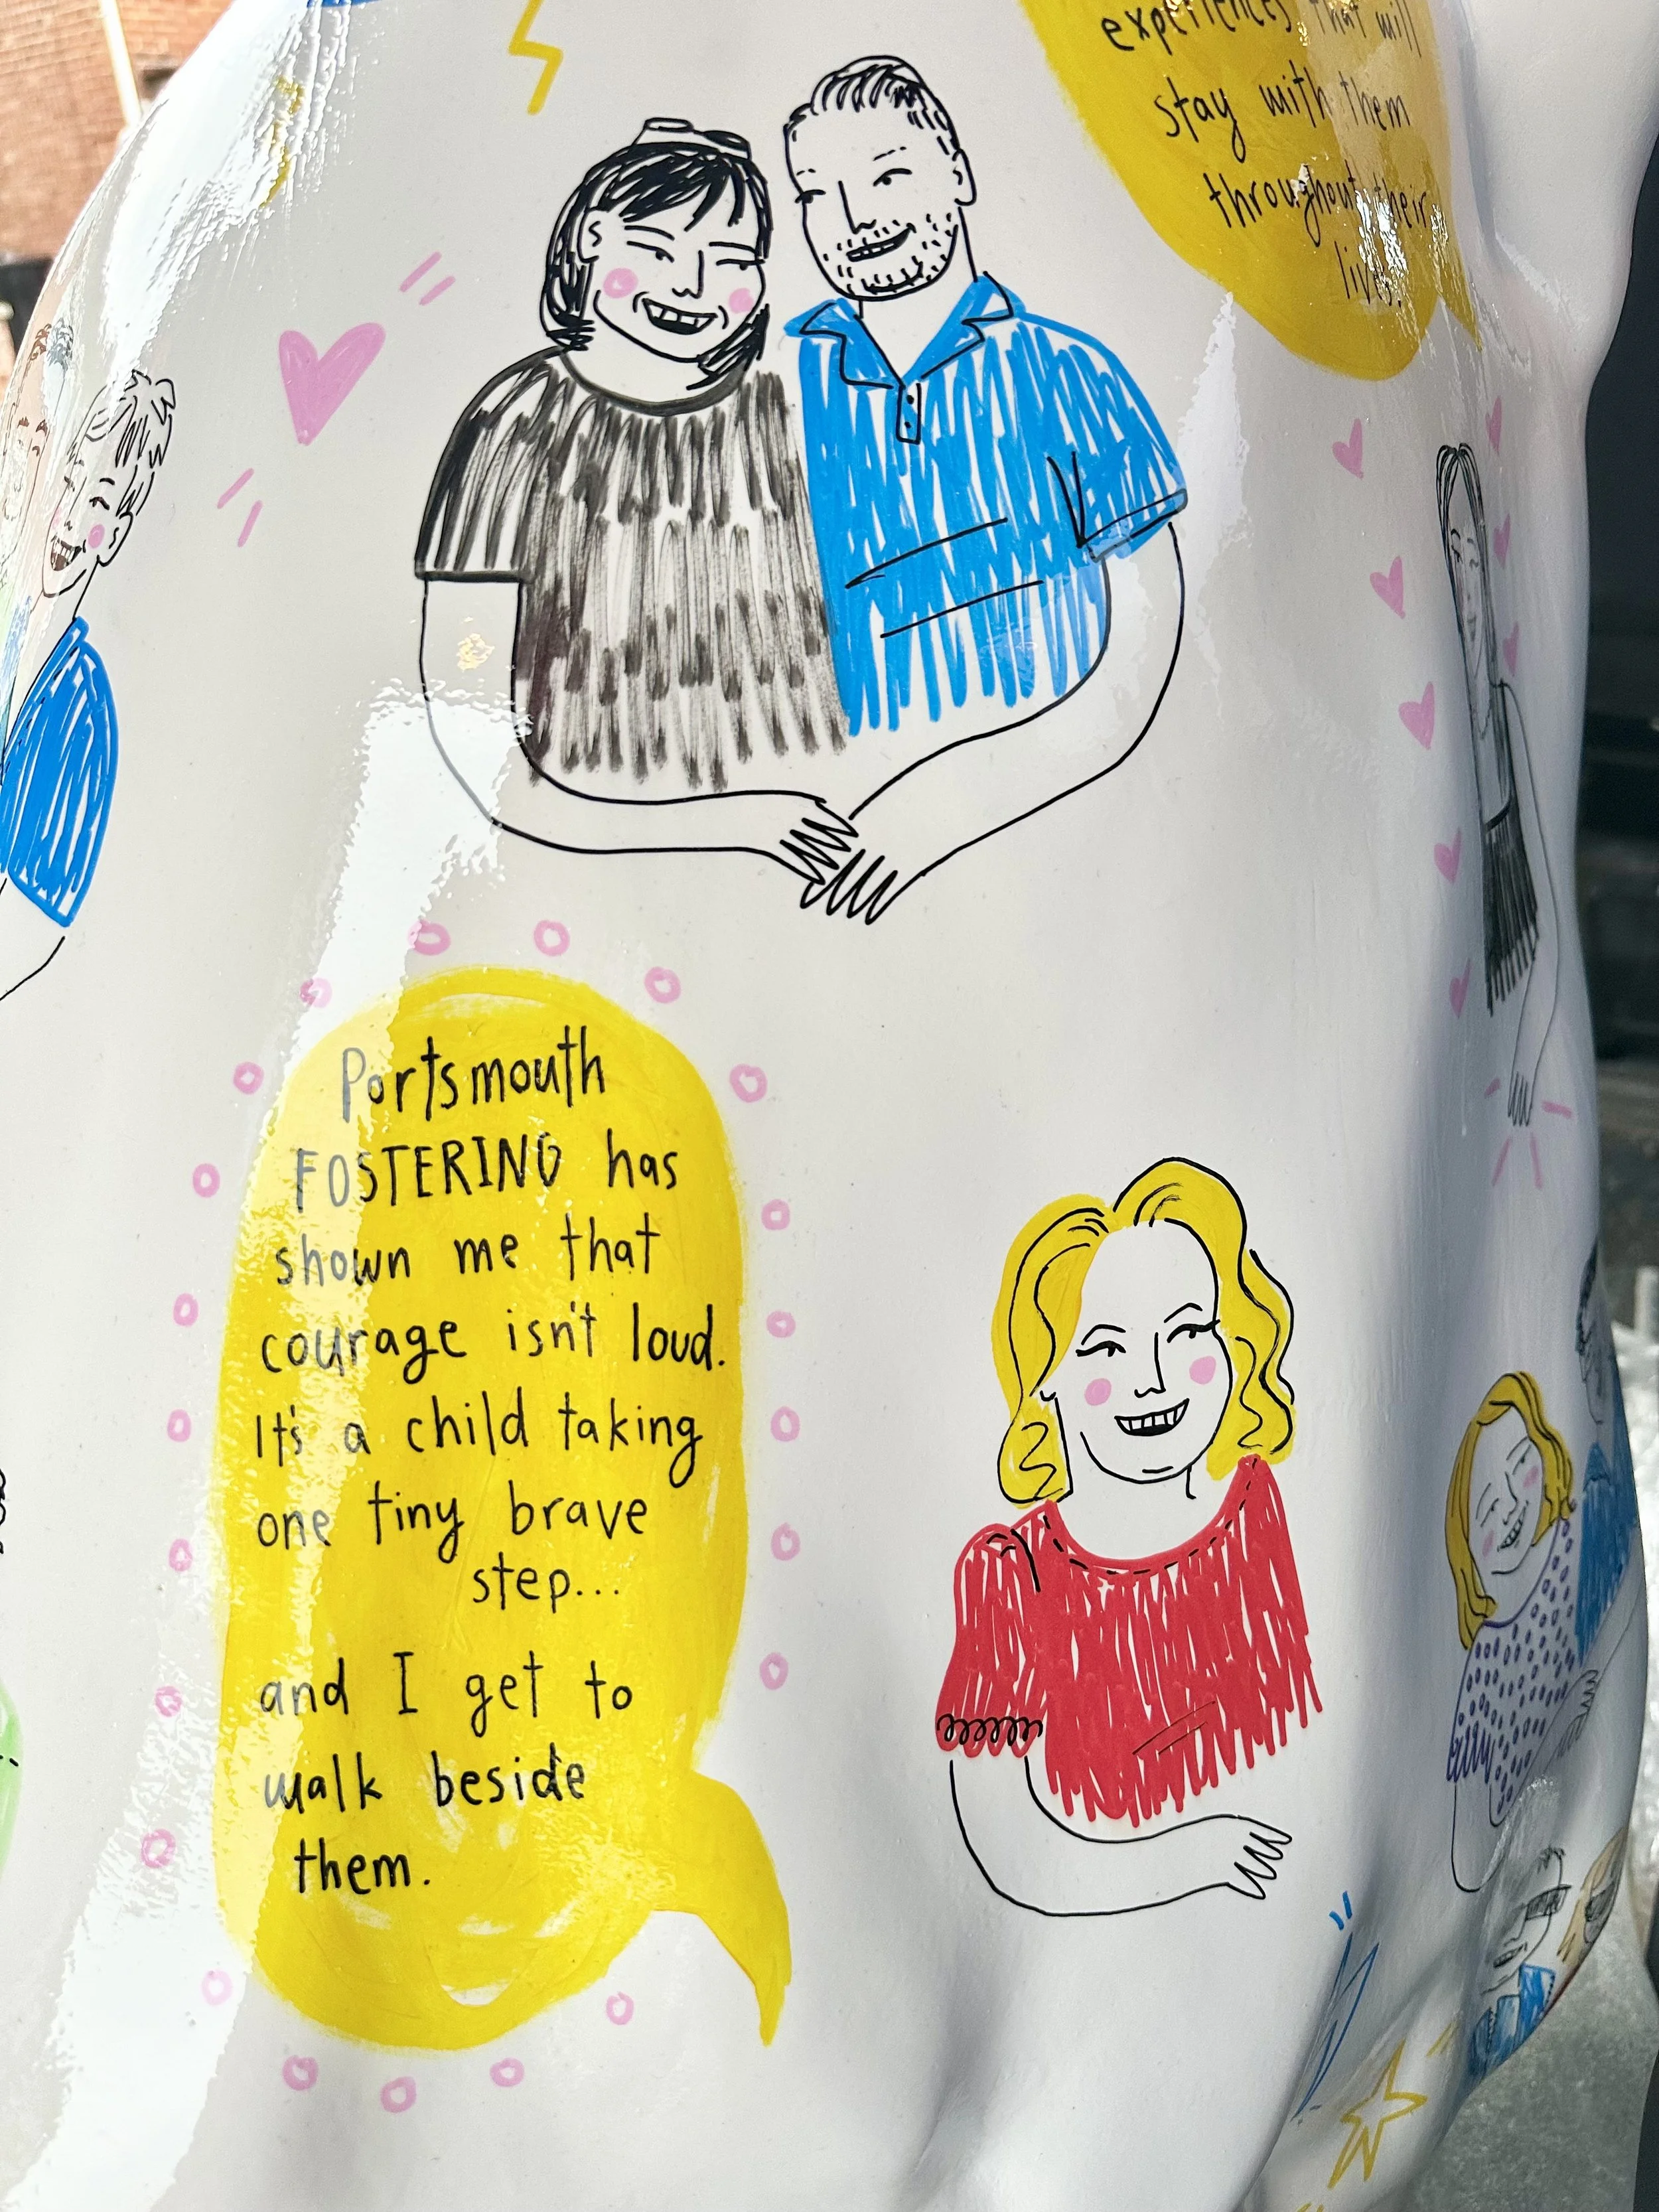 experiences that will
stay with them
throughout their
lives.
Portsmouth
FOSTERING has
shown me that
courage isn't loud.
It's a child taking
one tiny brave
step...
and I get to
walk beside
them.